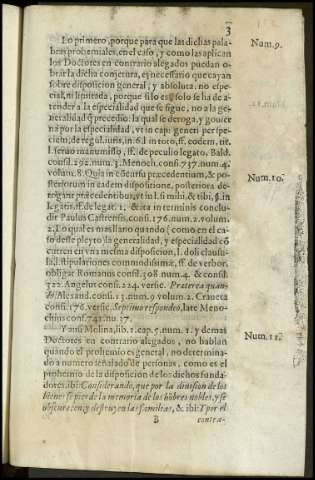 3
Lo primero, porque para que las dichas pala-
bras prohemiales, en el caso, y como las aplican
los Doctores en contrario alegados puedan o-
brar la dicha conjetura, es necessario que cayan
sobre disposicion general, y absoluta, no espe-
cial, ni limitada, porque si lo es, solo se ha de a-
tender a la especialidad que se sigue, no a la ge-
neralidad q̃ precedio: la qual se deroga, y gouier
na por la especialidad, vt in cap. generi per spe-
ciem, de regul. iuris, in 6. l. in toto, ff. eodem, &c.
l. seruo manumisso, ff. de peculio legato. Bald.
consil. 292. num. 3. Menoch. consil. 737. num. 4.
volum. 8. Quia in cõcursu præcedentium, & pos-
teriorum in eadem dispositione, posteriora de-
rogant præcedentibus, vt in l. si mihi & tibi, §. in
legatis, ff. de legat. 1. & ita in terminis conclu-
dit Paulus Castrensis, consil. 176. num. 2. volum.
2. Lo qual es mas llano quando (como en el ca-
so deste pleyto) la generalidad, y especialidad cõ
curren en vna mesma disposicion, l. doli clausu-
la, l. stipulationes commodissimæ, ff. de verbor.
obligat. Romanus consil. 308. num. 4. & consil.
322. Angelus consi. 224. versic. Præterea quan-
do. Alexand. consi. 13. num. 9. volum. 2. Craueta
consi. 176. versic. Septimo respondeo, late Meno-
chius consi. 743. num. 37.
Y ansi Molina, lib. 1. cap. 5. num. 1. y demas
Doctores en contrario alegados, no hablan
quando el prohemio es general, no determina-
do a numero señalado de personas, como es el
prohemio de la disposicion de los dichos funda-
dores, ibi: Considerando, que por la diuision de los
bienes se pierde la memoria de los hõbres nobles, y se
obscurecen, y destruyen las familias, & ibi: Y por el
B contra-
Num. 9.
Num. 10.
Num. 11.